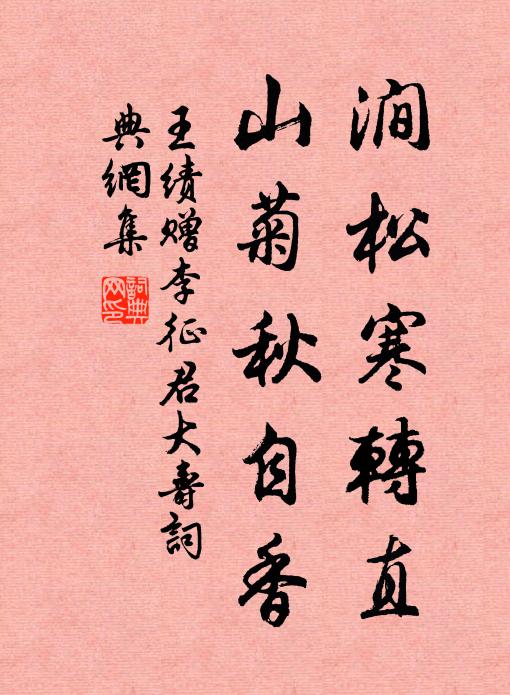 澗松寒轉直
山菊秋自香
王績贈李征君大壽詞
典網集
詞典
网印